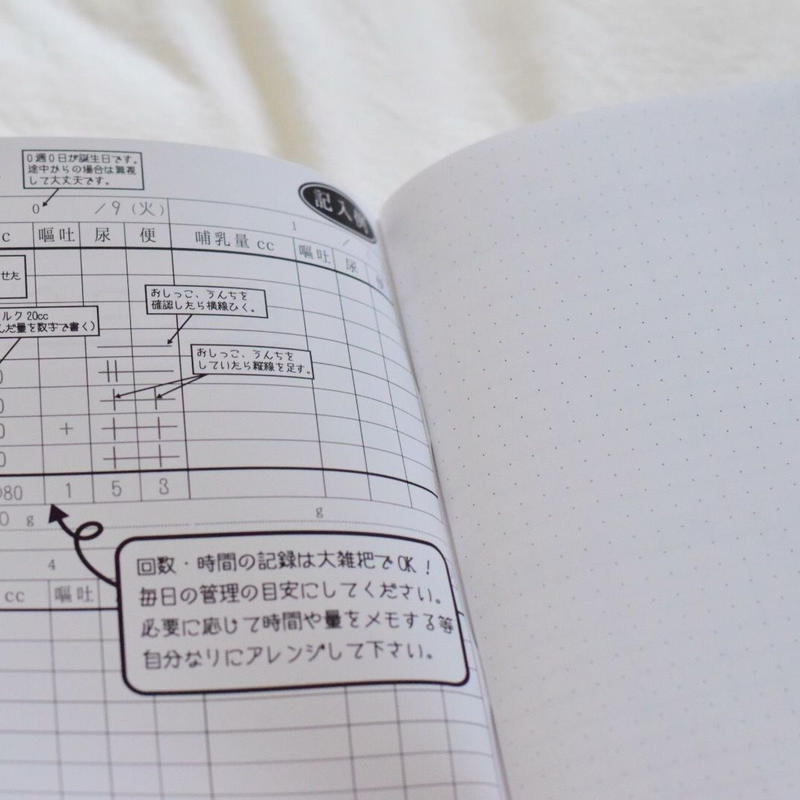 0週0日が誕生日です。
途中からの場合は無視
して大丈夫です。
記入例
0 /9(火) 1 /
c 嘔吐 尿 便 哺乳量 cc 嘔吐 尿
せた
ルク20cc
んだ量を数字で書く)
おしっこ、うんちを
確認したら横線ひく。
おしっこ、うんちを
していたら縦線を足す。
0
0
0 +
0
80 1 5 3
0 g g
4
cc 嘔吐
回数・時間の記録は大雑把でOK!
毎日の管理の目安にしてください。
必要に応じて時間や量をメモする等
自分なりにアレンジして下さい。